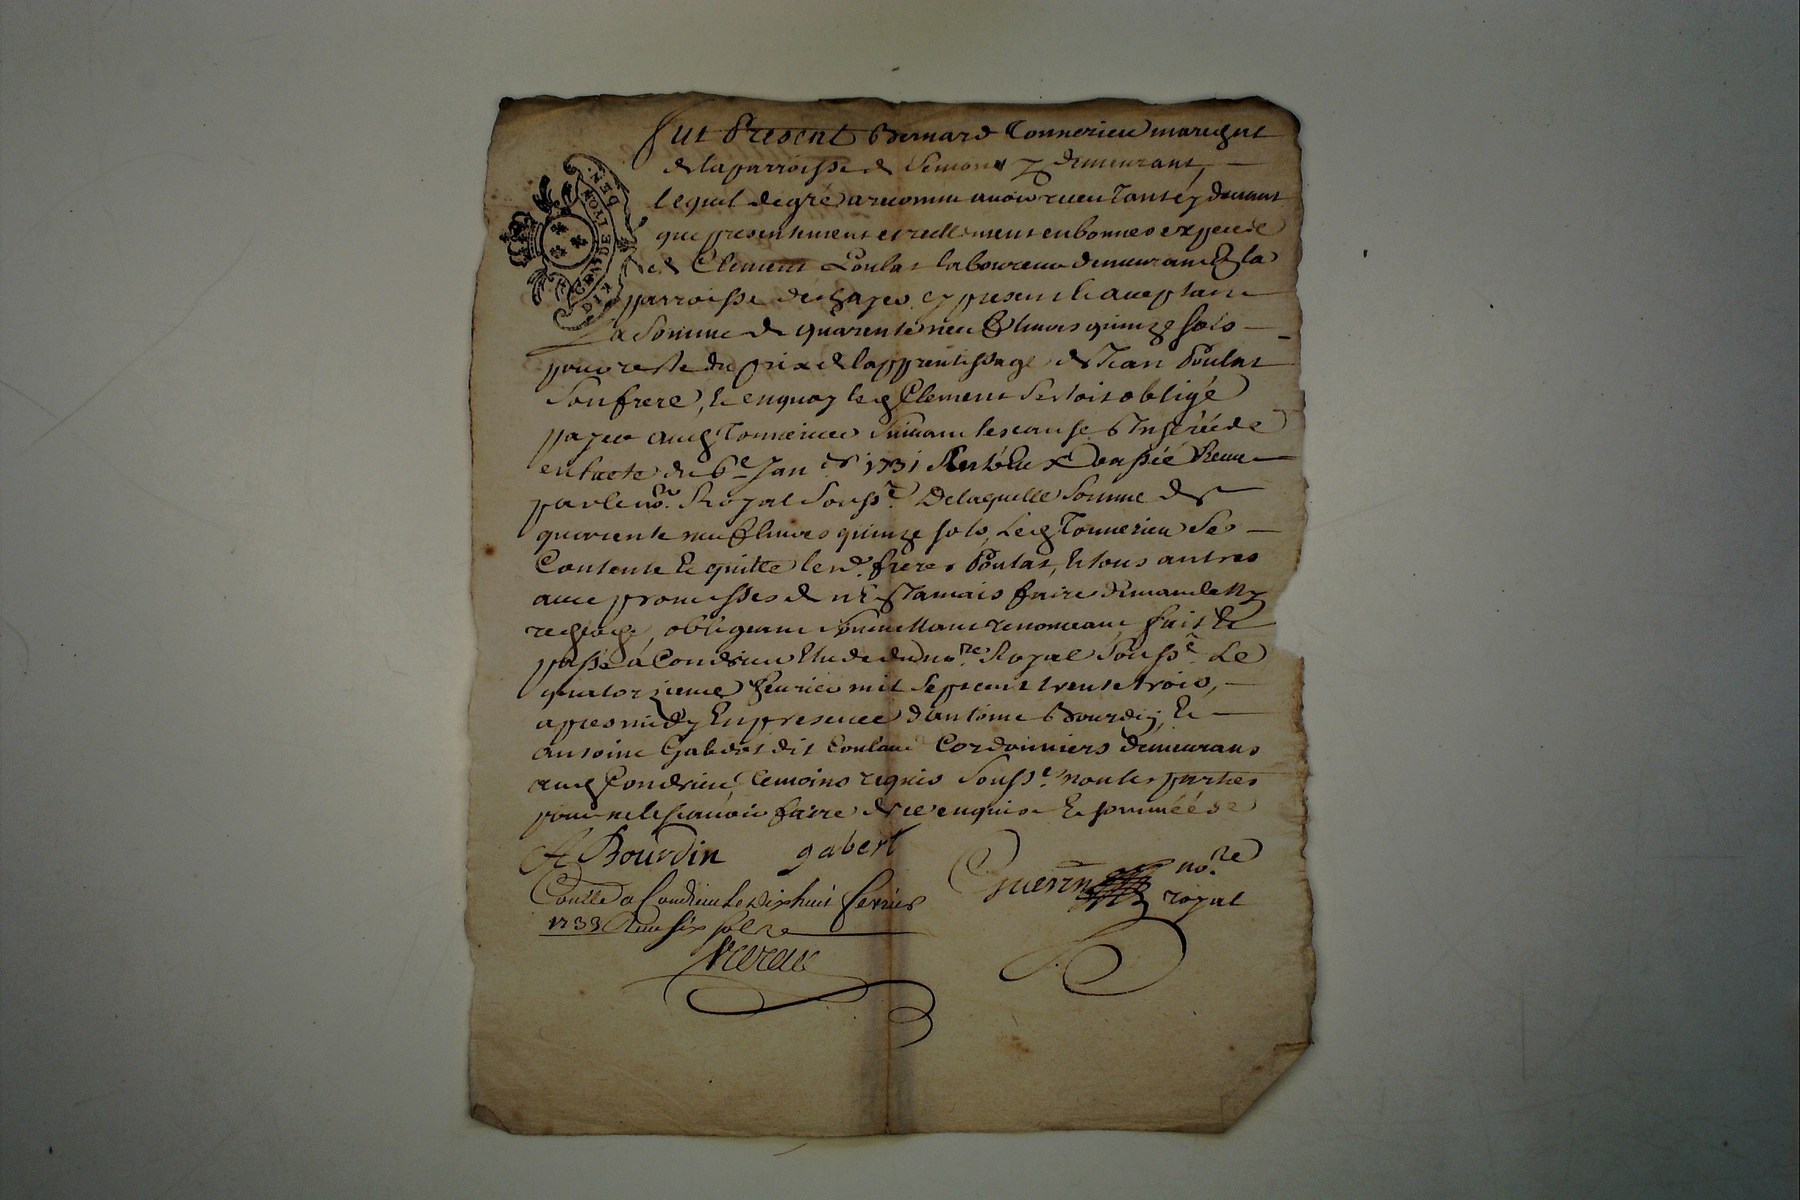 Fut Present Bernard Tonnerieu marechal
de la parroisse de Semons y demeurant,
lequel de gré a reconnu avoir receu tant cy devant
que presentement et reellement en bonnes expece
de Clement Poulat laboureur demeurant
parroisse de hayes cy present et acceptant
La somme de quarente neuf livres quinze sols
pour reste du prix de lapprentissage de Jean Poulat
son frere, et en quoy led Clement sestoit obligé
payer aud Tonnerieu suivant les cause Inserée
en lacte du 6e Jan 1731 Receu
par le nore Royal soussé De laquelle somme de
quarente neuf livres quinze sols, led Tonnerieu se
Contente et quitte lesd freres Poulat, et tous autres
avec promesses de nen Jamais faire demande ny
recherche, obligeant soumettant renonceant fait et
passé a Condrieu Etude dud nore Royal soussé Le
quatorzieme fevrier mil sept cent trente trois,
apres midy En presence dantoine Bourdin, et
antoine Gabert dit Coulaud Cordonniers demeurans
aud Condrieu temoins requis soussé non les parties
pour ne le scavoir faire de ce enquise et sommée
A Bourdin gabert
Guerin nore
royal
Conllé a Condrieu le dix huit fevrier
1733 Receu six sols